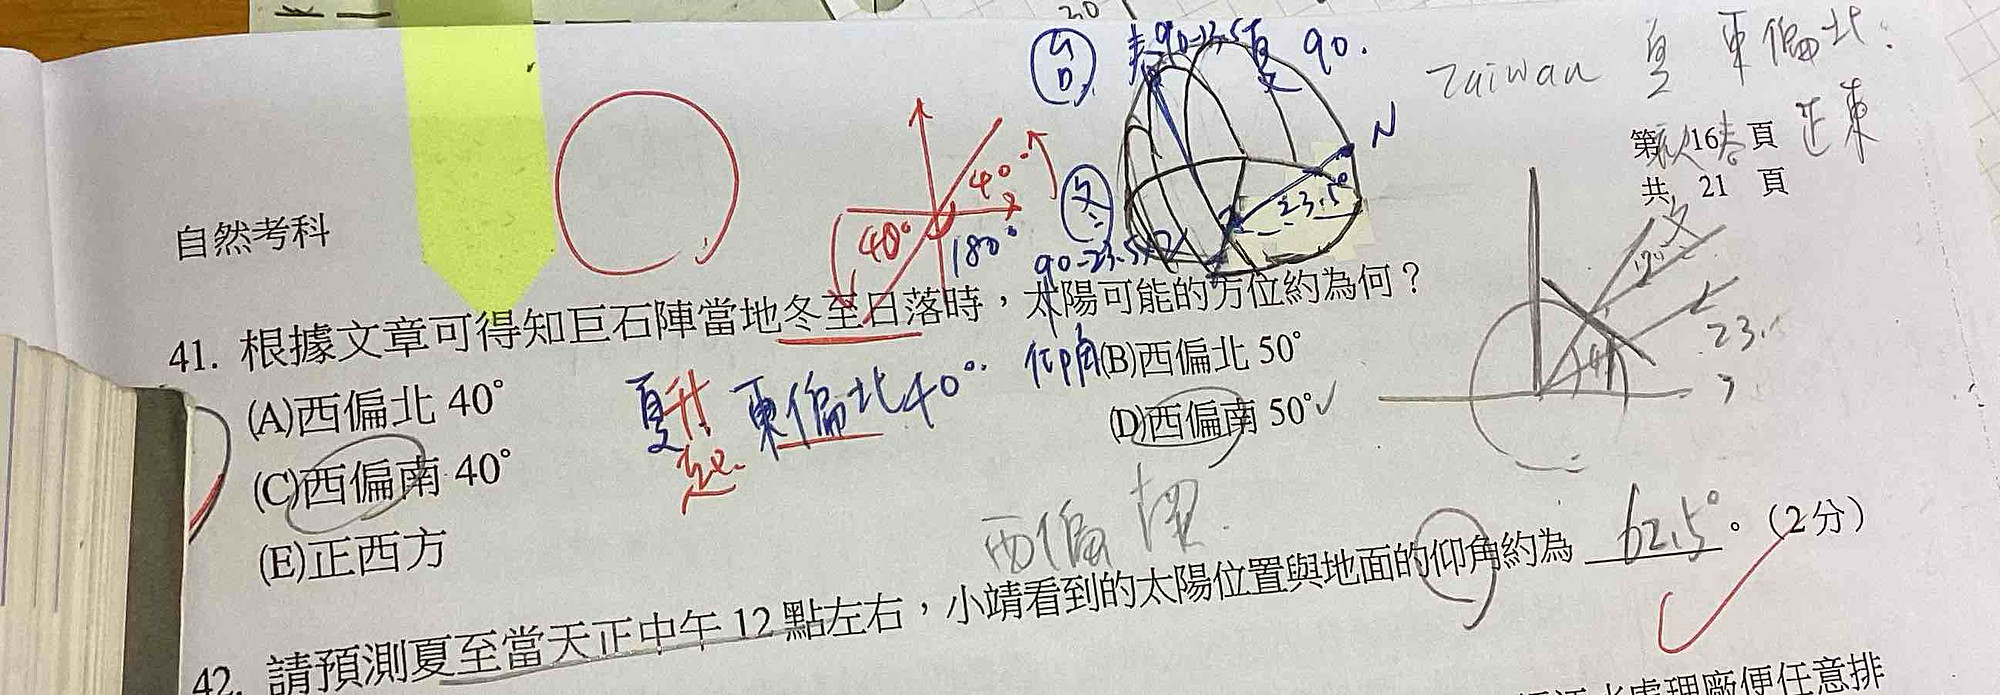 30
台 春 90-23.5 夏 90.
Taiwan 夏 東偏北:
N
秋 春 正東
第 16 頁
共 21 頁
自然考科
40°
40°
180°
冬:
23.5°
90-23.5
41. 根據文章可得知巨石陣當地冬至日落時，太陽可能的方位約為何？
(A)西偏北 40°
仰角
(B)西偏北 50°
夏升起 東偏北40°
(C)西偏南 40°
(D)西偏南 50°
(E)正西方
西偏
42. 請預測夏至當天正中午 12 點左右，小靖看到的太陽位置與地面的仰角約為 62.5° 。（2分）
處理廠便任意排